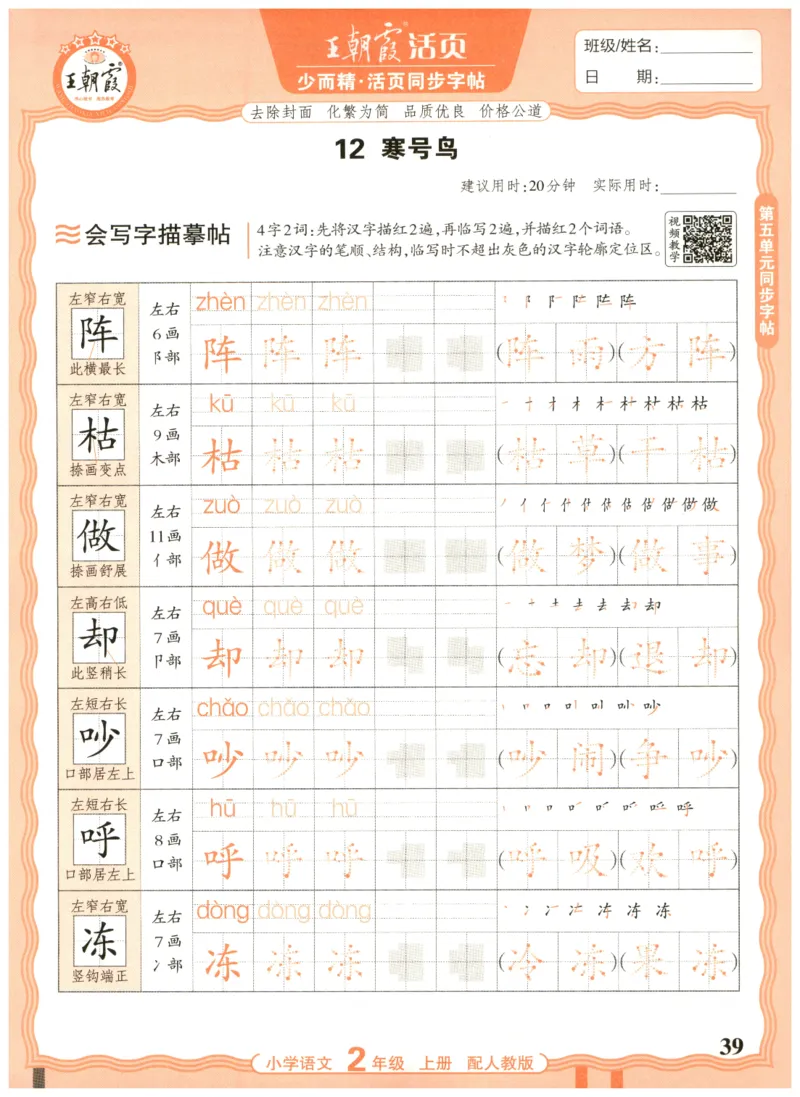 王朝霞活页
少而精·活页同步字帖
班级/姓名:
日 期:
王朝霞
去除封面 化繁为简 品质优良 价格公道
12 寒号鸟
建议用时:20分钟 实际用时:
会写字描摹帖
4字2词:先将汉字描红2遍,再临写2遍,并描红2个词语。
注意汉字的笔顺、结构,临写时不超出灰色的汉字轮廓定位区。
视频教学
第五单元同步字帖
左窄右宽 左右 zhèn zhèn zhèn
阵 6画 阝部 阵 阵 阵 (阵雨)(方阵)
此横最长
左窄右宽 左右 kū kū kū
枯 9画 木部 枯 枯 枯 (枯草)(干枯)
捺画变点
左窄右宽 左右 zuò zuò zuò
做 11画 亻部 做 做 做 (做梦)(做事)
捺画舒展
左高右低 左右 què què què
却 7画 卩部 却 却 却 (忘却)(退却)
此竖稍长
左短右长 左右 chǎo chǎo chǎo
吵 7画 口部 吵 吵 吵 (吵闹)(争吵)
口部居左上
左短右长 左右 hū hū hū
呼 8画 口部 呼 呼 呼 (呼吸)(欢呼)
口部居左上
左窄右宽 左右 dòng dòng dòng
冻 7画 冫部 冻 冻 冻 (冷冻)(果冻)
竖钩端正
39
小学语文 2年级 上册 配人教版